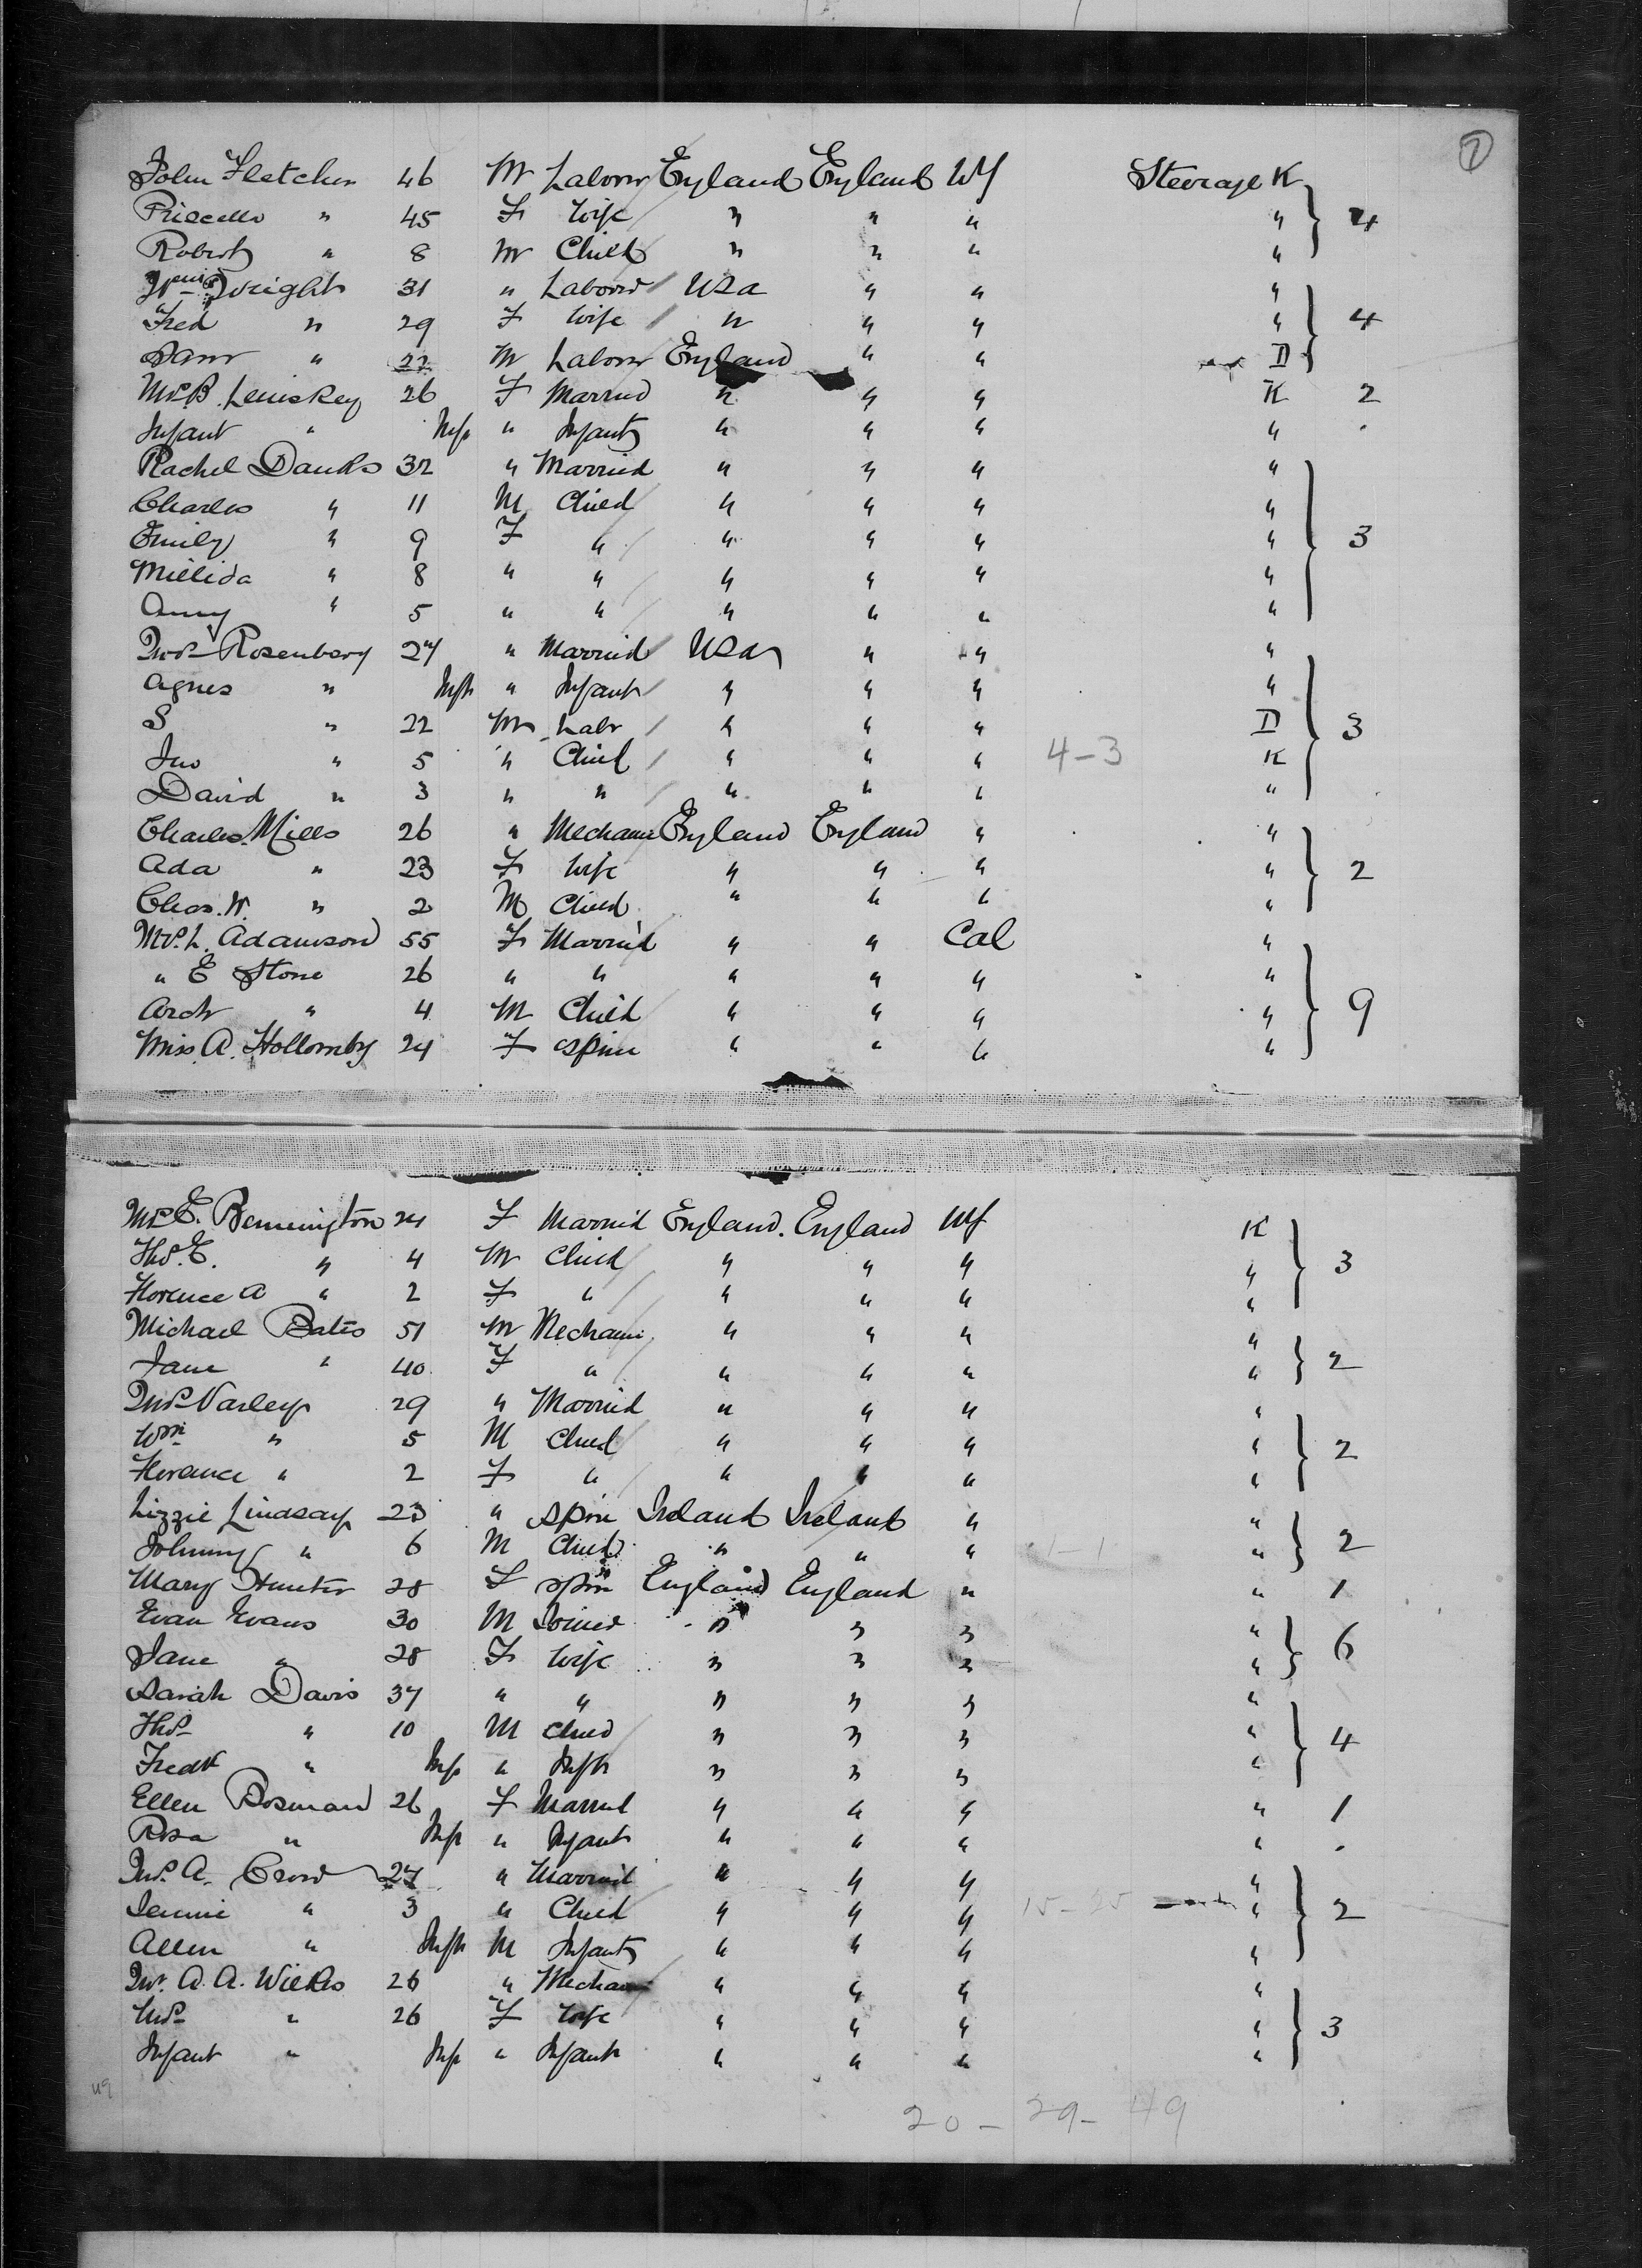 7
John Fletcher 46 M Labour England England NY Steerage K
Priscella " 45 F Wife " " " " 4
Robert " 8 M Child " " " "
Wright 31 " Labour USA " " "
Fred " 29 F Wife " " " " 4
Sam " 22 M Labour England " " D
Mrs B. Leuiskey 26 F Married " " " K 2
Infant " Inft " Infant " " " "
Rachel Danks 32 " Married " " " "
Charles " 11 M Child " " " "
Emily " 9 F " " " " " 3
Millida " 8 " " " " " "
Amy " 5 " " " " " "
Mrs Rosenberg 27 " Married USA " " "
Agnes " Inft " Infant " " " "
S " 22 M Labr " " " D 3
Jno " 5 " Child " " " 4-3 K
David " 3 " " " " " "
Charles Mills 26 " Mechanic England England " "
Ada " 23 F Wife " " " " 2
Chas. W. " 2 M Child " " " "
Mrs L. Adamson 55 F Married " " Cal "
" E Stone 26 " " " " " "
Arch " 4 M Child " " " " 9
Miss A. Hollomby 24 F spin " " " "
Mrs E. Bennington 24 F Married England England NY K
Thos. E. " 4 M Child " " " " 3
Florence A " 2 F " " " " "
Michael Bates 51 M Mechanic " " " "
Jane " 40 F " " " " " 2
Mrs Varley 29 " Married " " " "
Wm " 5 M Child " " " " 2
Florance " 2 F " " " " "
Lizzie Lindsay 23 " spin Ireland Ireland " "
Johnny " 6 M Child " " " 1-1 " 2
Mary Hunter 28 F spin England England " " 1
Evan Evans 30 M Joiner " " " "
Jane " 28 F Wife " " " " 6
Sarah Davis 37 " " " " " "
Thos " 10 M Child " " " " 4
Fredk " Inft " Inft " " " "
Ellen Bosman 26 F Married " " " " 1
Rosa " Inft " Infant " " " "
Mrs. A. Crow 27 " Married " " " "
Jennie " 3 " Child " " " 15-25 " 2
Allen " Inft M Infant " " " "
Mr. A. A. Wilks 26 " Mechanic " " " "
Mrs " 26 F Wife " " " " 3
Infant " Inft " Infant " " " "
49
20 - 29 - 49